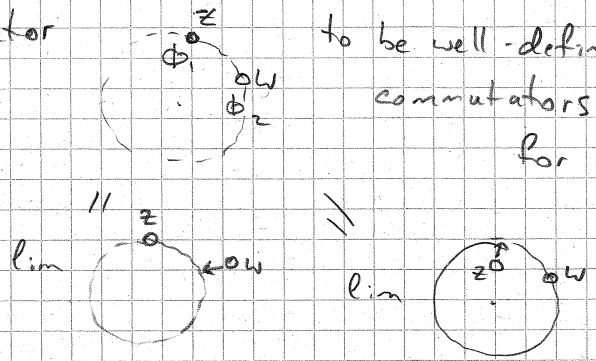 tor z to be well-defin
Φ₁ w commutators
Φ₂ for
// \\
z
lim w lim z w